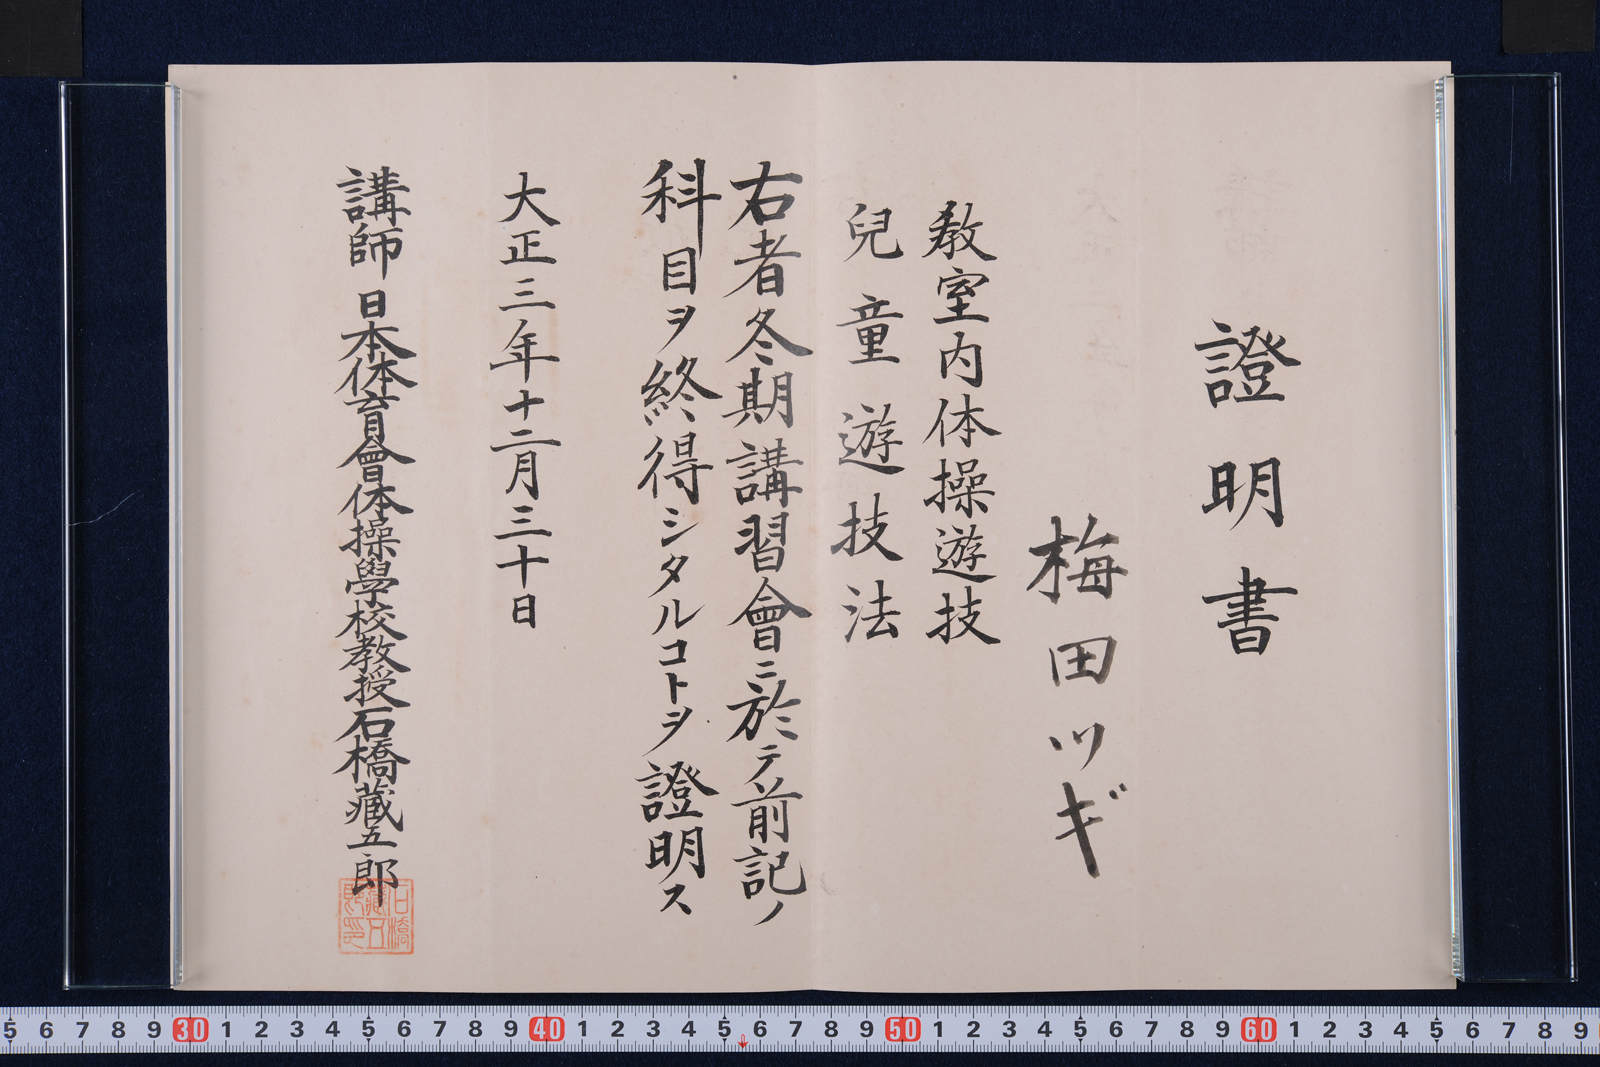 證明書
梅田ツギ
教室内体操遊技
兒童遊技法
右者冬期講習會ニ於テ前記ノ
科目ヲ終得シタルコトヲ證明ス
大正三年十二月三十日
講師 日本体育會体操學校教授石橋藏五郎
石橋藏五郎印
5 6 7 8 9 30 1 2 3 4 5 6 7 8 9 40 1 2 3 4 5 6 7 8 9 50 1 2 3 4 5 6 7 8 9 60 1 2 3 4 5 6 7 8 9